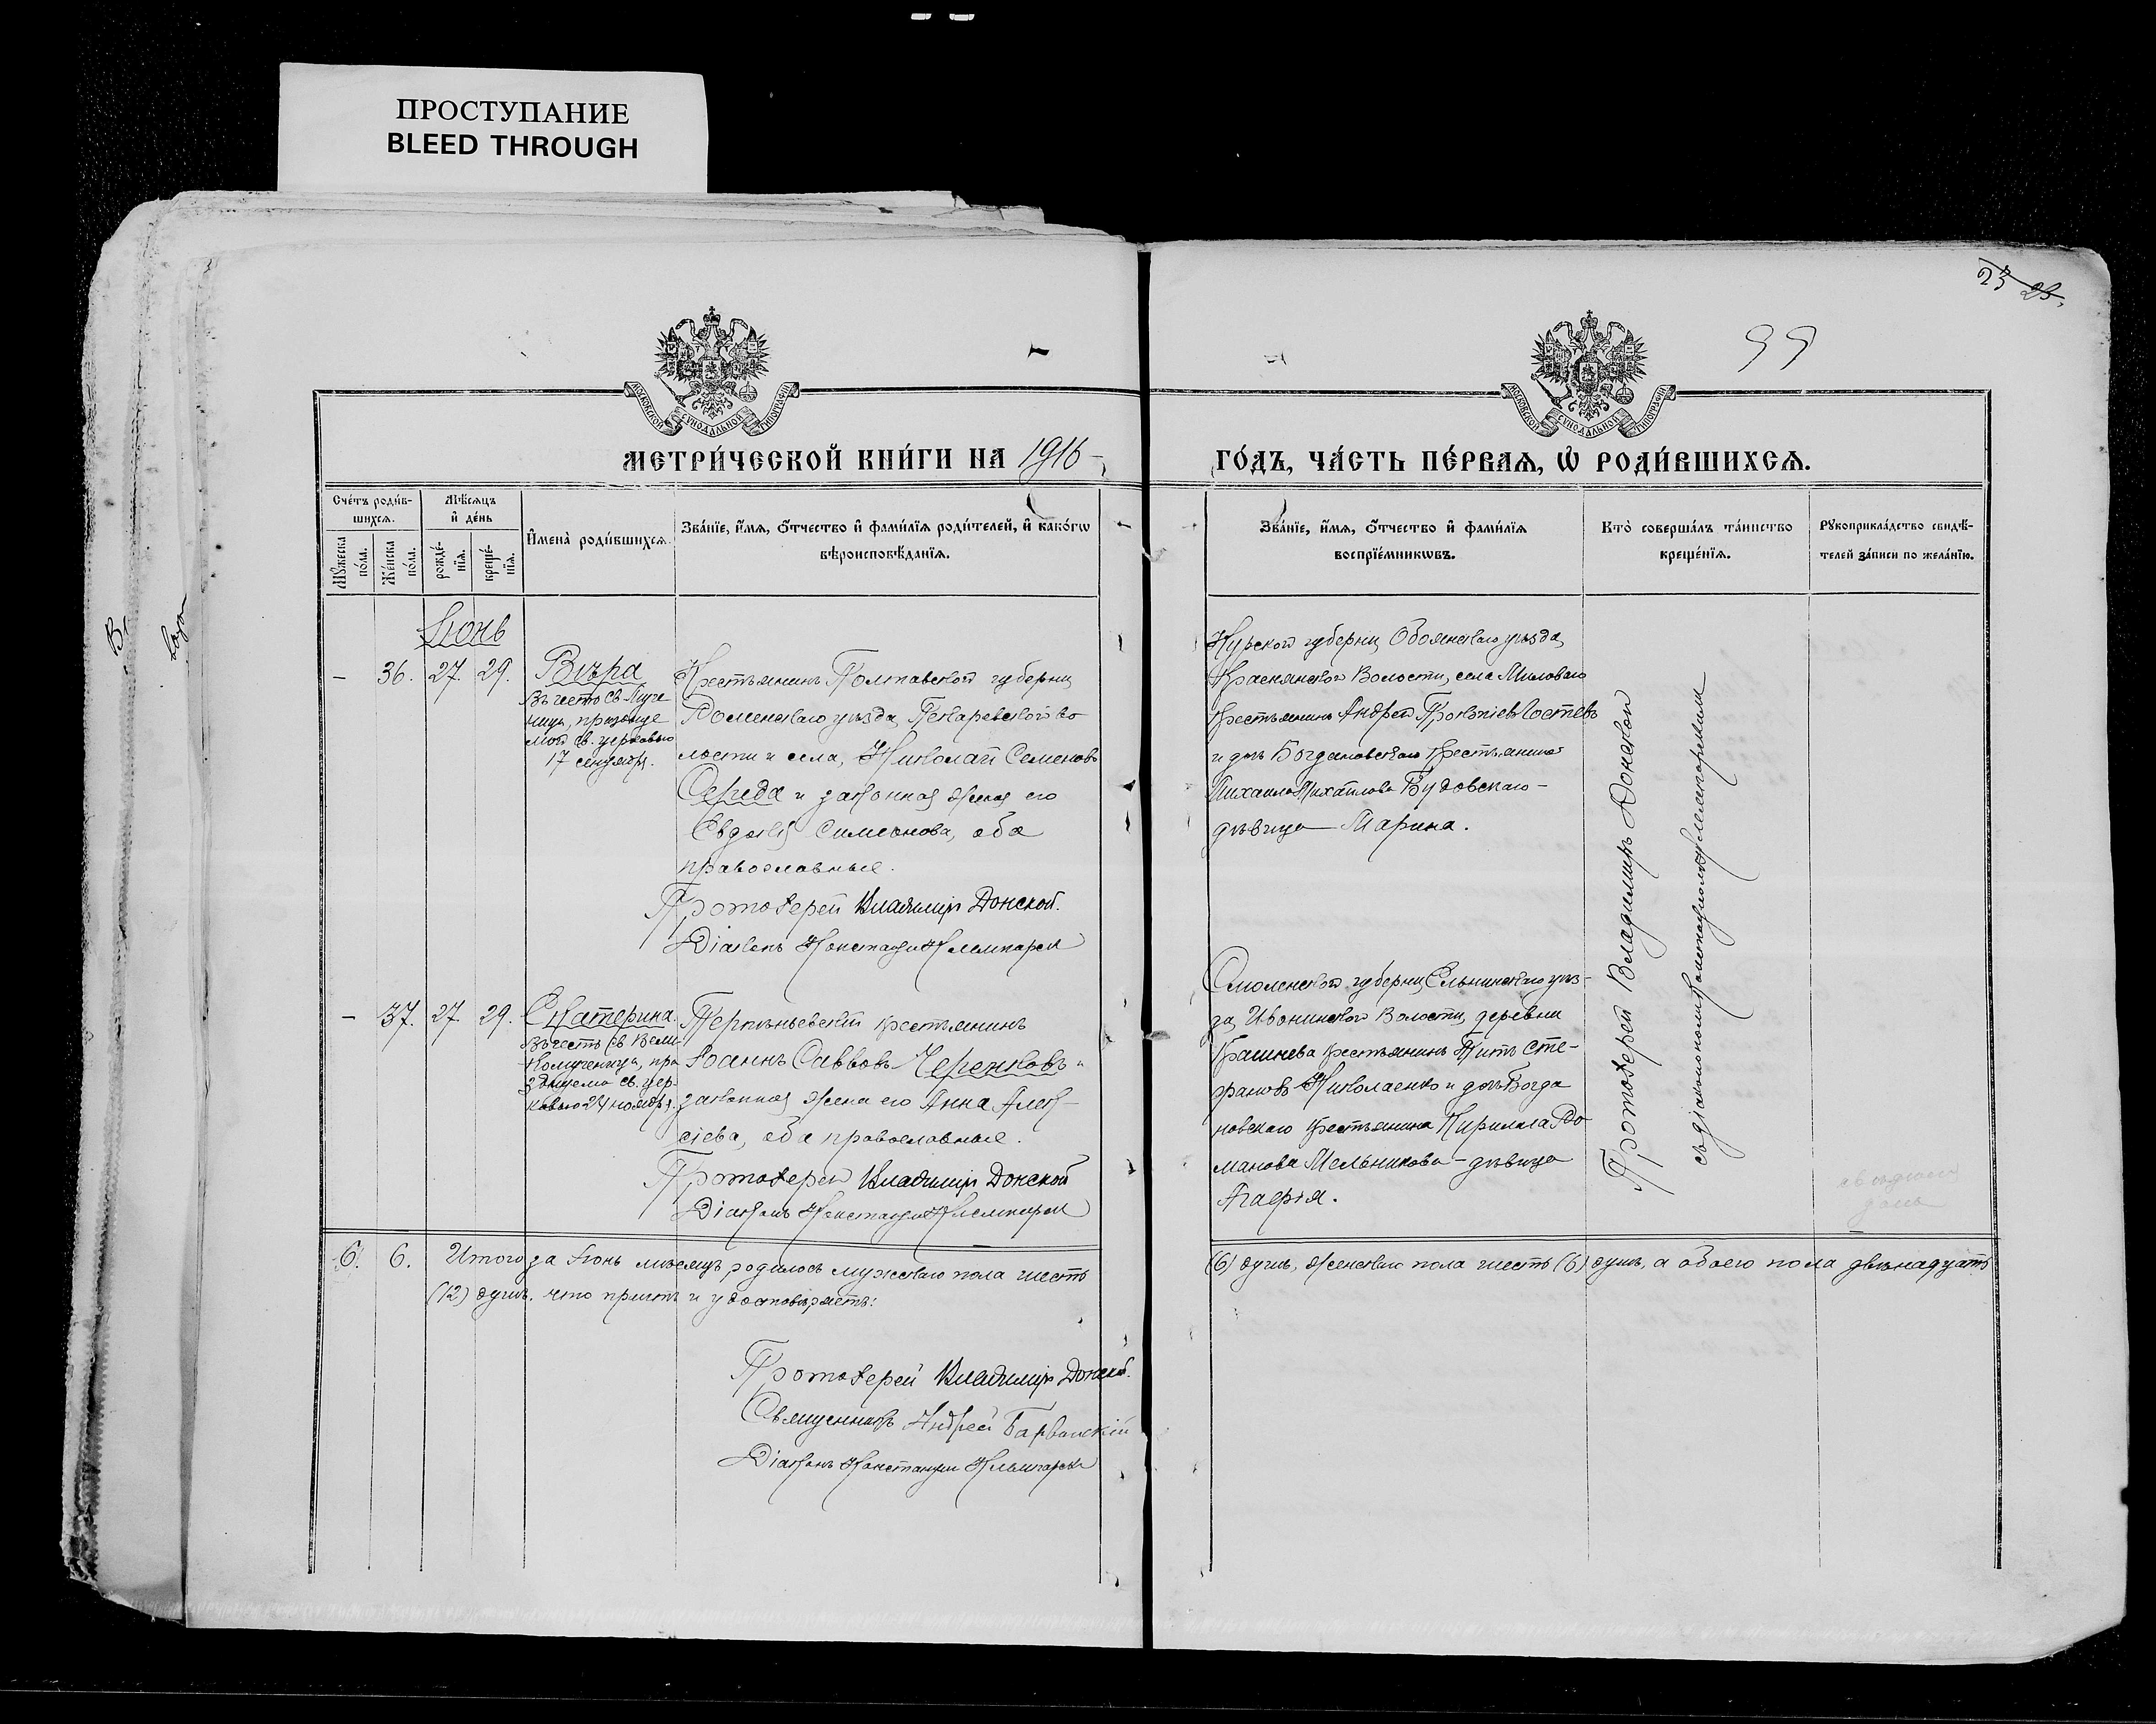 ПРОСТУПАНИЕ
BLEED THROUGH
23 23.
99
МОСКОВСКОЙ СѴНОДАЛЬНОЙ ТИПОГРАФІИ
МОСКОВСКОЙ СѴНОДАЛЬНОЙ ТИПОГРАФІИ
МЕТРИ́ЧЕСКОЙ КНИ́ГИ НА 1916
ГО́ДЪ, ЧА́СТЬ ПЕ́РВАЯ, Ѡ РОДИ́ВШИХСЯ.
Сче́тъ роди́в-
шихся.
Мѣ́сяцъ
и҆ де́нь
Мꙋ́жеска
по́ла.
Же́нска
по́ла.
рожде́-
нїя.
креще́-
нїя.
И҆мена̀ роди́вшихся.
Зва́нїе, и҆́мя, ѻ҆́тчество и҆ фами́лїя роди́телей, и҆ како́гѡ
вѣроисповѣ́данїя.
Зва́нїе, и҆́мя, ѻ҆́тчество и҆ фами́лїя
воспрїе́мникѡвъ.
Кто̀ соверша́лъ та́инство
креще́нїя.
Рꙋкоприкла́дство свидѣ́-
телей за́писи по жела́нїю.
Іюнь
– 36. 27. 29. Вѣра
Въ честь Св. Муче
ницы, празднуе
мой св. церковью
17 сентября.
Крестьянинъ Полтавской губерніи
Роменскаго уѣзда, Пекаревской во
лости и села, Николай Семеновъ
Середа и законная жена его
Евдокія Симеонова, оба
православные.
Протоіерей Владимиръ Донской.
Діаконъ
Курской губерніи Обоянскаго уѣзда,
Краснянской Волости, села Миловаго
крестьянинъ Андрей Прокопіевъ Костевъ
и дочь Богдановскаго крестьянина
Михаила Михайлова Будовскаго –
дѣвица Марина.
Протоіерей Владимиръ Донской
съ діакономъ
– 37. 27. 29. Екатерина.
Въ честь св. Вели-
комученицы, пра
здуемо св. цер-
ковью 24 ноября.
Терпѣньевскій крестьянинъ
Іоаннъ Саввовъ Черенковъ и
законная жена его Анна Алек-
сіева, оба православные.
Протоіерей Владимиръ Донской
Діаконъ
Смоленской губерніи, Ельнинскаго уѣз-
да, Ивонинской Волости, деревни
крестьянинъ Титъ Сте-
фановъ Николаенко и дочь Богда
новскаго крестьянина Кирилла Ро-
манова Мельникова – дѣвица
Агафія.
6. 6. Итого за Іюнь мѣсяцъ родилось мужескаго пола шесть (6) душъ, женскаго пола шесть (6) душъ, а обоего пола двѣнадцать
(12) душъ, что причтъ и удостовѣряетъ:
Протоіерей Владимиръ Донской.
Священникъ Андрей
Діаконъ